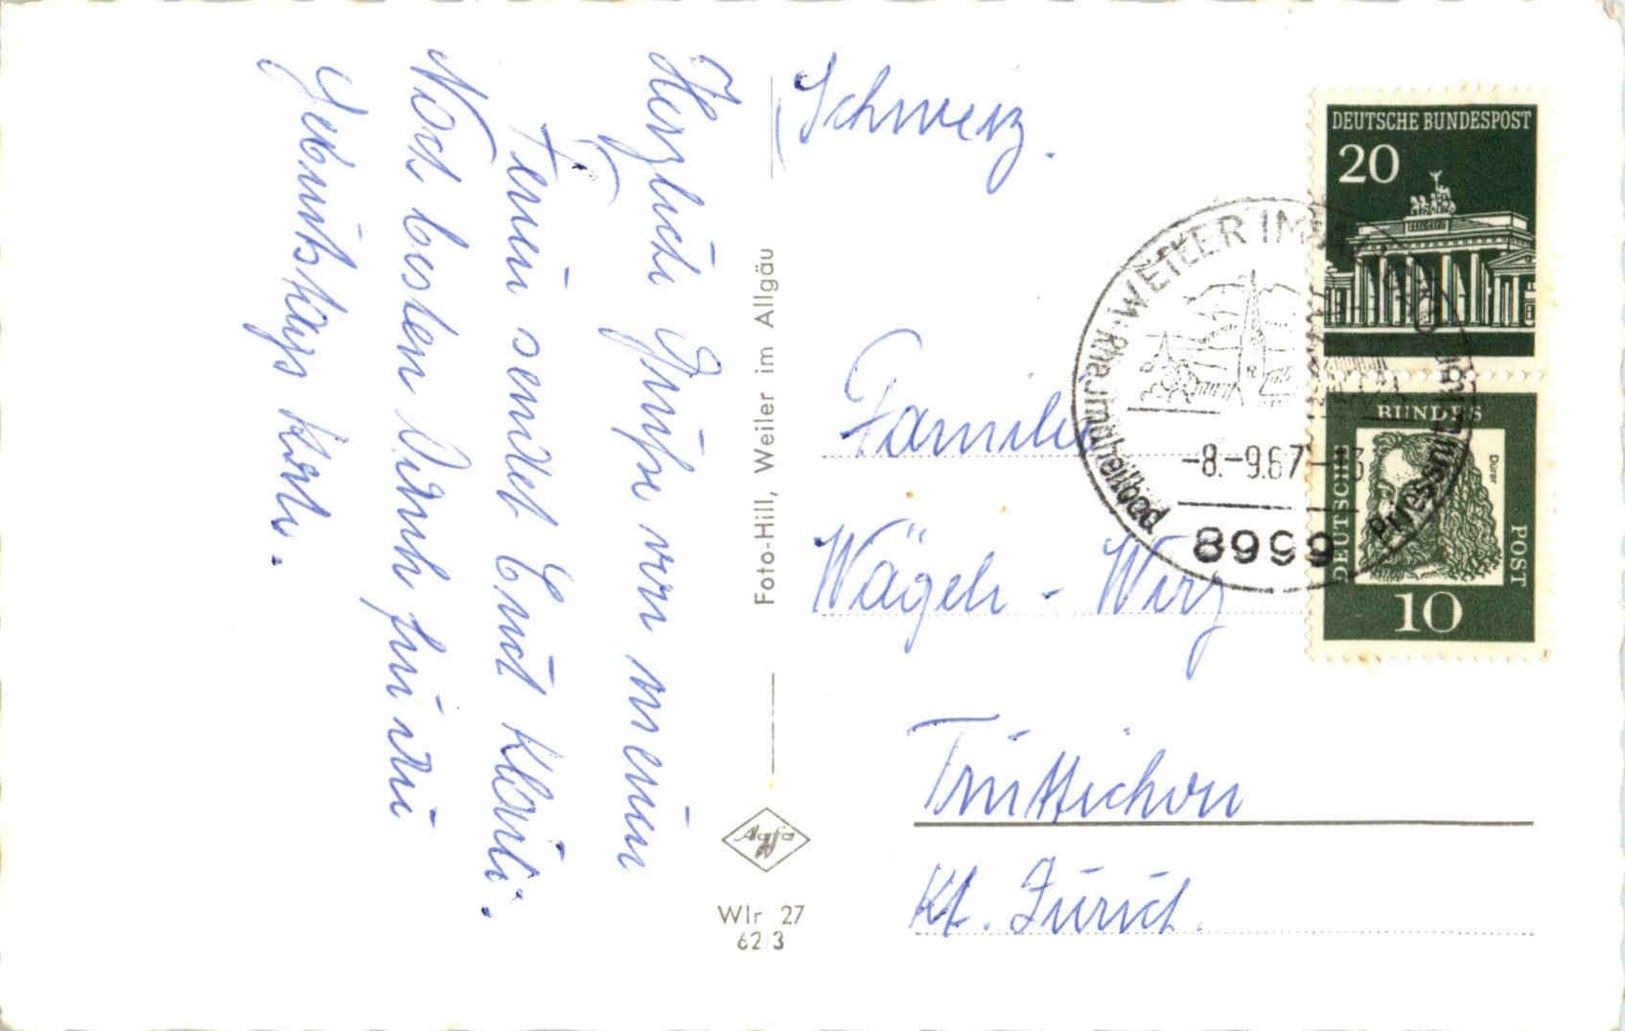 Herzliche Grüsse von meinen
Ferien sendet Euch Klärli.
Noch besten Dank für die
Geburtstags Karte.
Foto-Hill, Weiler im Allgäu
Agfa
Wlr 27
62 3
Schweiz.
Familie
Wägeli - Wirz
Trüttikon
Kt. Zürich.
DEUTSCHE BUNDESPOST
20
WEILER IM
Rheumaheilbad
-8.-9.67
8999
DEUTSCHE
BUNDES
POST
Dürer
10